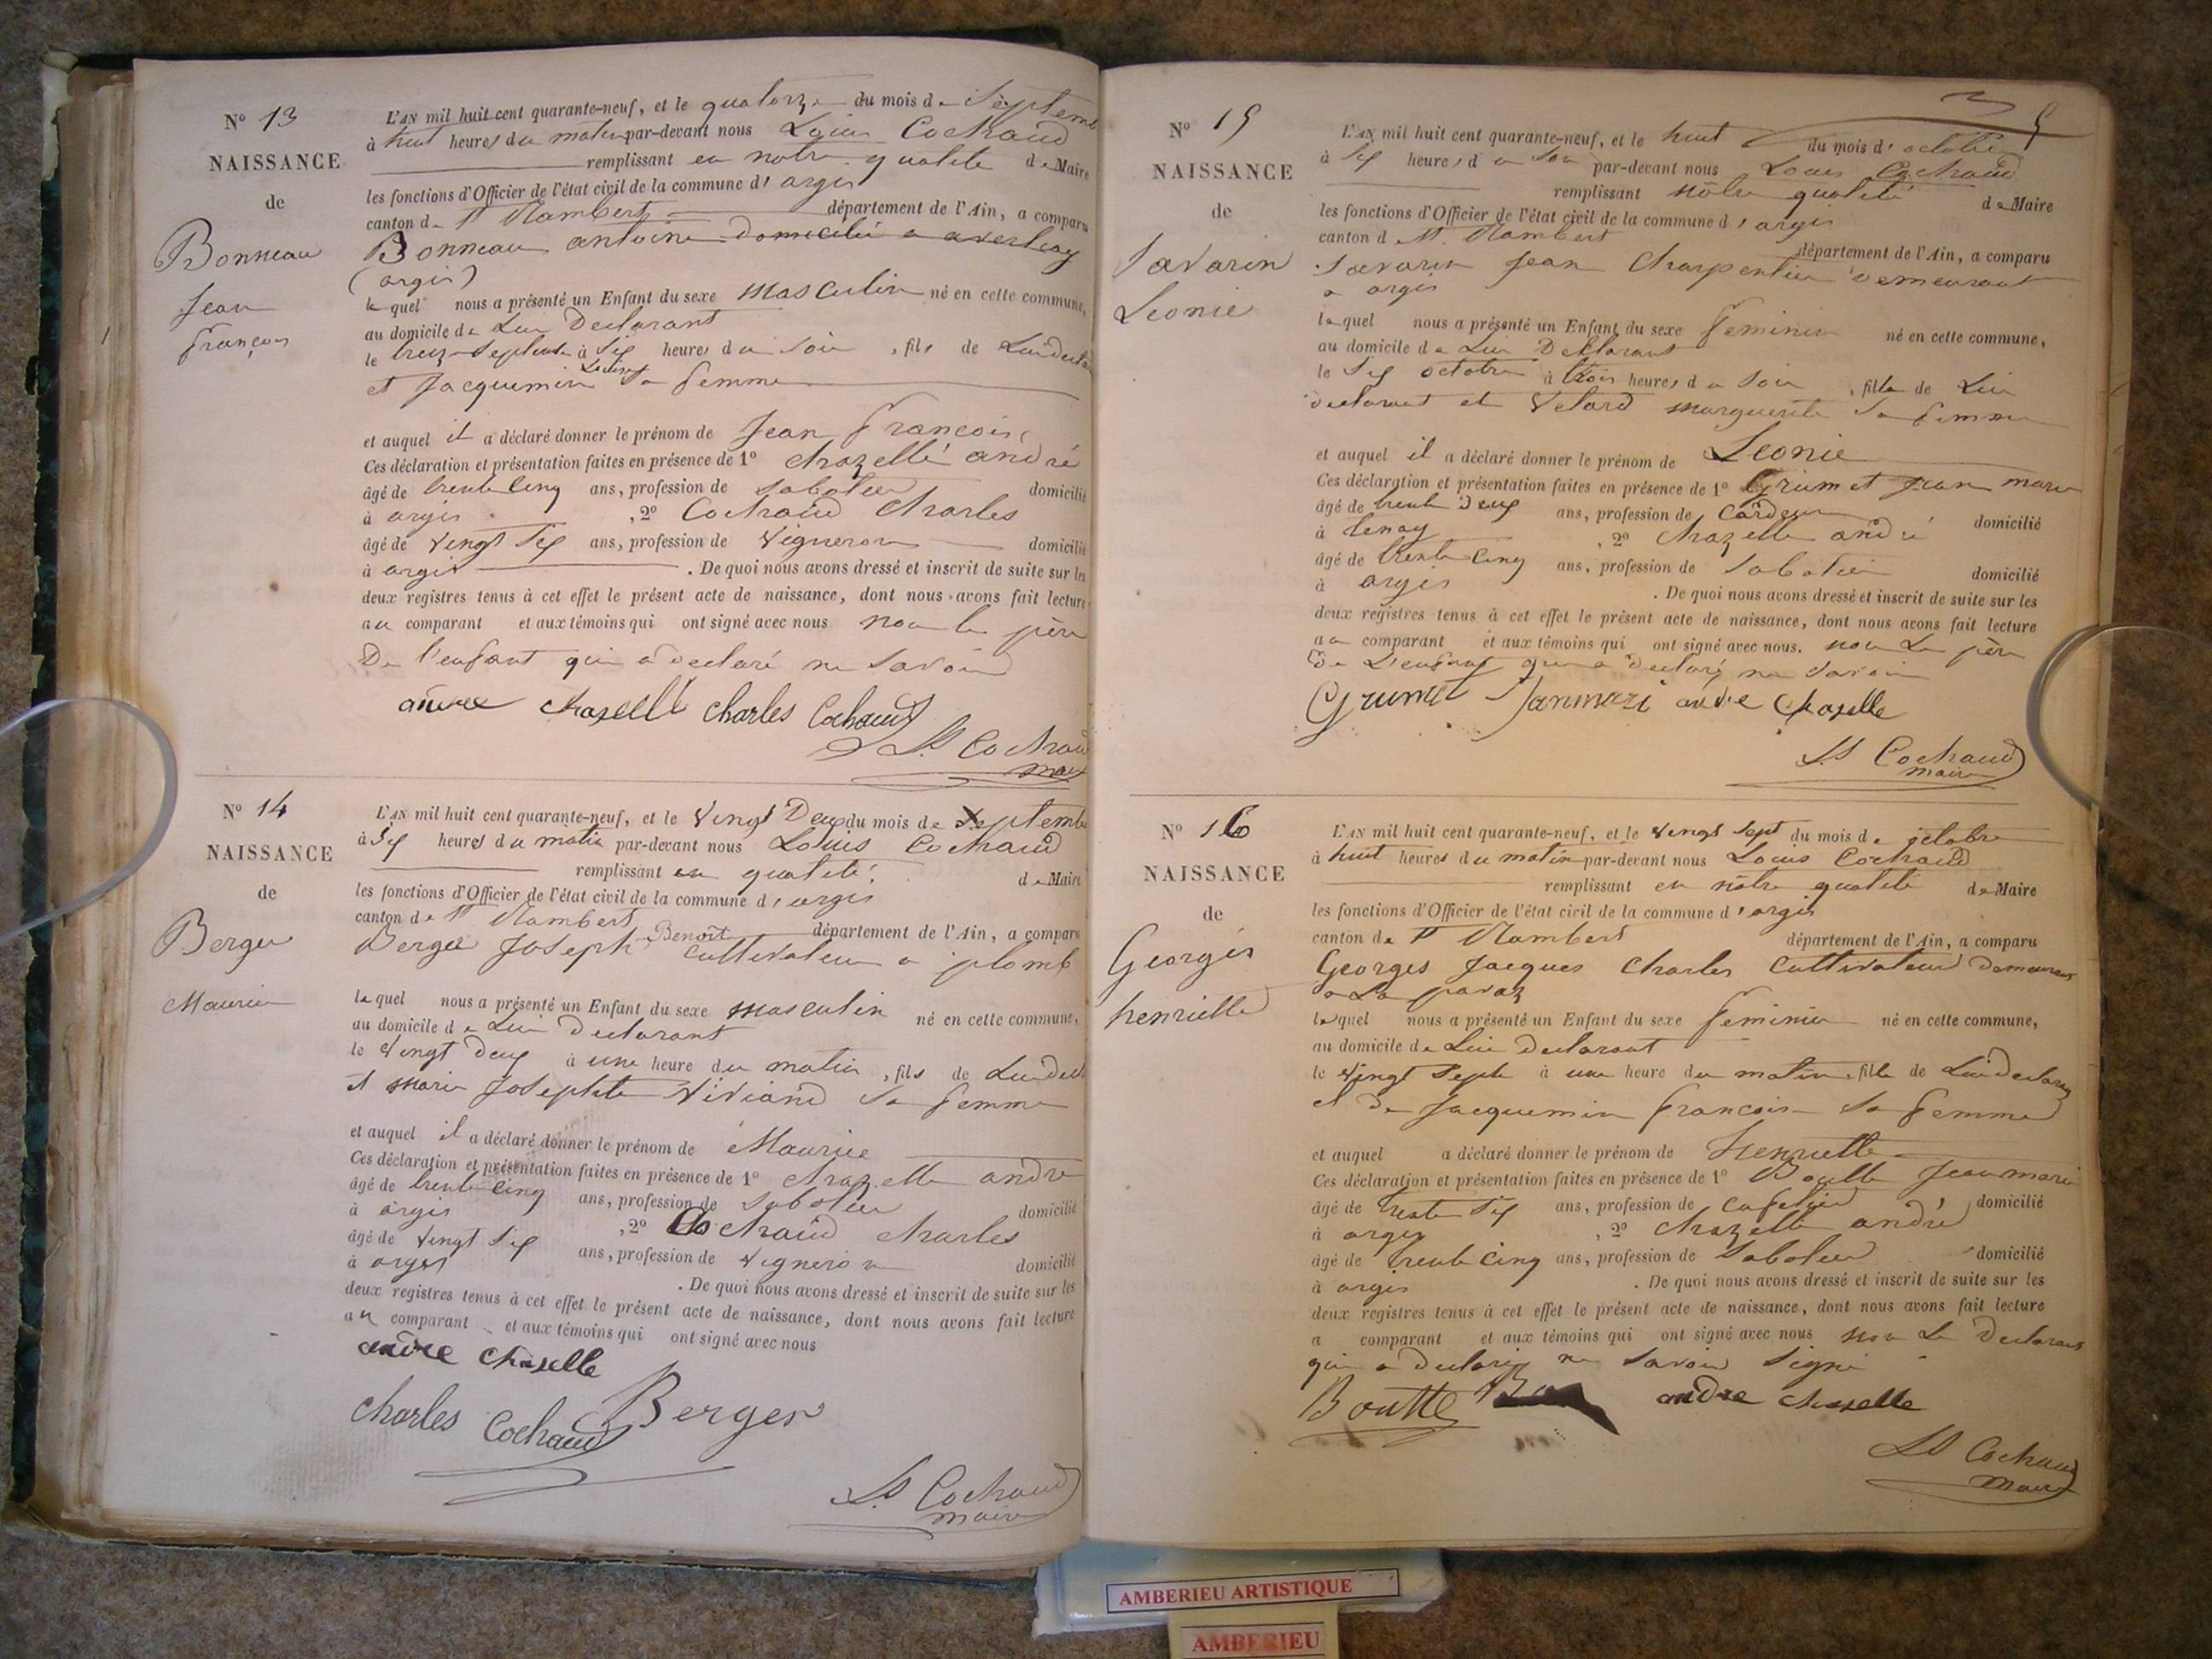 N° 13
NAISSANCE
de
Bonneau
Jean
François
L'AN mil huit cent quarante-neuf, et le quatorze du mois de Septemb
à huit heures du matin par-devant nous Louis Cochaud
remplissant en notre qualité de Maire
les fonctions d'Officier de l'état civil de la commune d'argis
canton de St Rambert département de l'Ain, a comparu
Bonneau antoine domicilié a
(argis)
lequel nous a présenté un Enfant du sexe masculin né en cette commune,
au domicile de Lui Declarant
le treize Septembre à Six heures du Soir, fils de Lui declar
et Jacquemin Sa femme
et auquel il a déclaré donner le prénom de Jean François
Ces déclaration et présentation faites en présence de 1° Chazelle andré
âgé de trente Cinq ans, profession de Sabotier domicilié
à argis, 2° Cochaud Charles
âgé de Vingt Six ans, profession de Vigneron domicilié
à argis. De quoi nous avons dressé et inscrit de suite sur les
deux registres tenus à cet effet le présent acte de naissance, dont nous avons fait lecture
au comparant et aux témoins qui ont signé avec nous non le père
De l'enfant qui a declaré ne Savoir
andre chaselle charles Cochaud
Ls Cochaud
maire
N° 14
NAISSANCE
de
Berger
Maurice
L'AN mil huit cent quarante-neuf, et le Vingt Deux du mois de Septemb
à Six heures du matin par-devant nous Louis Cochaud
remplissant en qualité de Maire
les fonctions d'Officier de l'état civil de la commune d'argis
canton de St Rambert département de l'Ain, a comparu
Berger Joseph Benoît Cultivateur a plomb
lequel nous a présenté un Enfant du sexe masculin né en cette commune,
au domicile de Lui Declarant
le Vingt deux à une heure du matin, fils de Lui decl
et marie Josephte Viviand Sa femme
et auquel il a déclaré donner le prénom de Maurice
Ces déclaration et présentation faites en présence de 1° Chazelle andre
âgé de trente Cinq ans, profession de Sabotier domicilié
à argis, 2° Cochaud Charles
âgé de Vingt Six ans, profession de Vigneron domicilié
à argis. De quoi nous avons dressé et inscrit de suite sur les
deux registres tenus à cet effet le présent acte de naissance, dont nous avons fait lecture
au comparant et aux témoins qui ont signé avec nous
andre chaselle
charles Cochaud Berger
Ls Cochaud
maire
5
N° 15
NAISSANCE
de
Savarin
Leonie
L'AN mil huit cent quarante-neuf, et le huit du mois d'octobre
à Six heures du Soir par-devant nous Louis Cochaud
remplissant nôtre qualité de Maire
les fonctions d'Officier de l'état civil de la commune d'argis
canton d St Rambert département de l'Ain, a comparu
Savarin Jean Charpentier Demeurant
a argis
lequel nous a présenté un Enfant du sexe feminin né en cette commune,
au domicile de Lui Declarant
le Six octobre à trois heures du Soir, fille de Lui
declarant et Velard marguerite Sa femme
et auquel il a déclaré donner le prénom de Leonie
Ces déclaration et présentation faites en présence de 1° Grumet Jean marie
âgé de trente Deux ans, profession de Cardeur domicilié
à tenay, 2° Chazelle andré
âgé de trente Cinq ans, profession de Sabotier domicilié
à argis. De quoi nous avons dressé et inscrit de suite sur les
deux registres tenus à cet effet le présent acte de naissance, dont nous avons fait lecture
au comparant et aux témoins qui ont signé avec nous. non Le père
De L'enfant qui a declaré ne Savoir
Grumet Janmari andre Chaselle
Ls Cochaud
maire
N° 16
NAISSANCE
de
Georges
henriette
L'AN mil huit cent quarante-neuf, et le Vingt Sept du mois de octobre
à huit heures du matin par-devant nous Louis Cochaud
remplissant en nôtre qualité de Maire
les fonctions d'Officier de l'état civil de la commune d'argis
canton de St Rambert département de l'Ain, a comparu
Georges Jacques Charles Cultivateur demeurant
a La pavaz
lequel nous a présenté un Enfant du sexe feminin né en cette commune,
au domicile de Lui declarant
le Vingt Sept à une heure du matin, fille de Lui declarant
et De Jacquemin françoise Sa femme
et auquel a déclaré donner le prénom de Henriette
Ces déclaration et présentation faites en présence de 1° Boutte Jean marie
âgé de trente Six ans, profession de Cafetier domicilié
à argis, 2° Chazelle andré
âgé de trente Cinq ans, profession de Sabotier domicilié
à argis. De quoi nous avons dressé et inscrit de suite sur les
deux registres tenus à cet effet le présent acte de naissance, dont nous avons fait lecture
a comparant et aux témoins qui ont signé avec nous non Le Declarant
qui a Declaré ne Savoir Signé
Boutte andre chaselle
Ls Cochaud
maire
AMBERIEU ARTISTIQUE
AMBERIEU